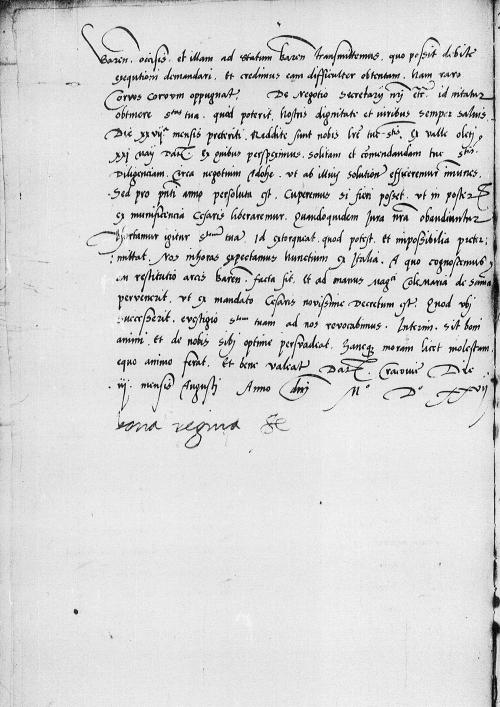 Baren. occisis, et illam ad statum Baren transmittemus, quo possit debite
exequtioni demandari. et credimus eam difficulter obtentam. Nam raro
Corvus corvum oppugnat De Negotio Secretarij nrj etc. id nitatur
obtinere S. tua. quod poterit, Nostris dignitate et iuribus semper salvis
Die xxvijᵃ mensis preteriti. Reddite sunt nobis lre ex valle oletj
xxj maij Dat. ex quibus perspeximus, solitam et comendandam tue
Diligenciam, circa negotium Adohe, ut ab illius solutione efficeremur imunes.
Sed pro pnti anno persoluta est. Cuperemus si fieri posset, ut in poster
ex munificencia Cesaris liberaremur. Quandoquidem Jura nra
hortamur igitur tua. Id extorqueat quod potest, et impossibilia preter
mittat. Nos inhoras expectamus nuncium ex Italia, A quo cognoscemus
an restitutio arcis Baren. facta sit, et ad manus Magci Cole Maria de
pervenerit, ut ex mandato Cesaris novissime decretum est. Quod ubj
successerit, evestigio S. tuam ad nos revocabimus. Interim sit boni
animi, et de nobis sibj optime persuadeat, hancq. moram licet molestam
equo animo ferat. Et bene valeat Dat. Cracovie Die
iij. mensis Augusti Anno dnj Mº Dº XXVII
bona regina